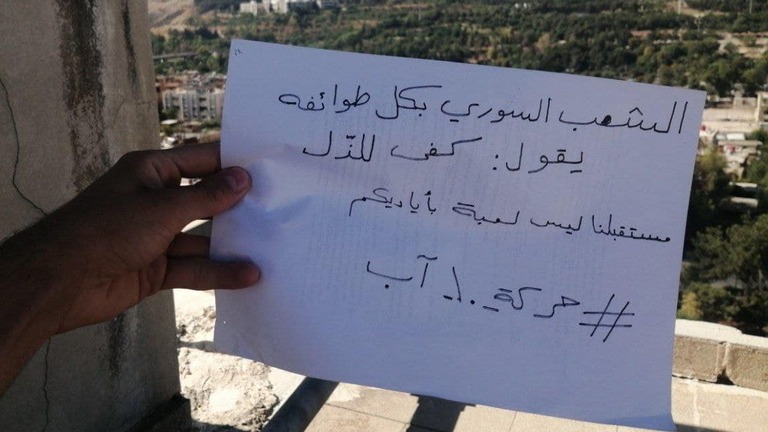 الشعب السوري بكل طوائفه
يقول: كفى للذّل
مستقبلنا ليس لعبة بأياديكم
#حركة_١٠_آب